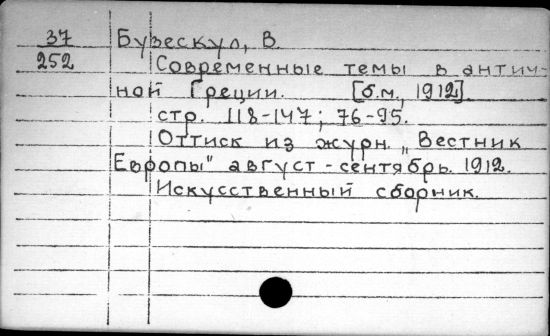 37 Бузескул, В.
252 Современные темы в антич-
ной Греции. [б.м., 1912].
стр. 118-147; 76-95.
Оттиск из журн. „Вестник
Европы" август-сентябрь. 1912.
Искусственный сборник.